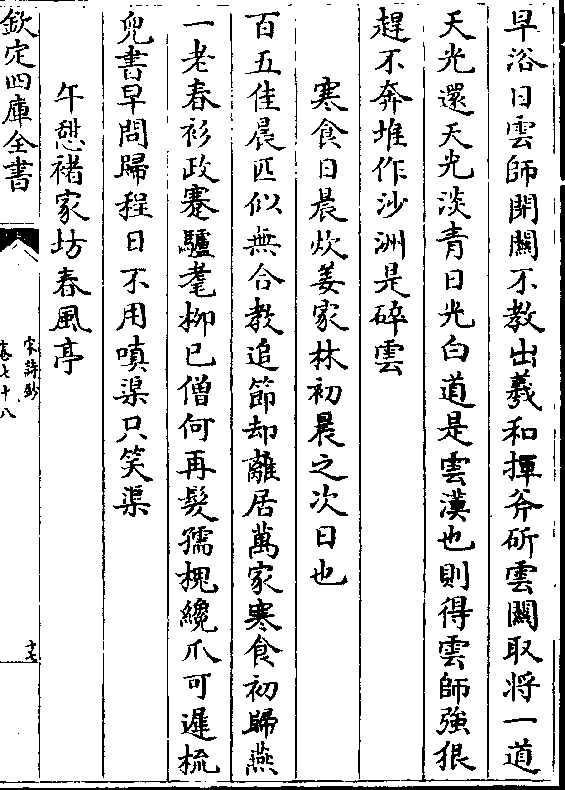 早浴日雲師開闗不教出羲和揮斧斫雲闗取將一道
天光還天光淡青日光白道是雲漢也則得雲師強狠
趕不奔堆作沙洲是碎雲
寒食日晨炊姜家林初晨之次日也
百五佳晨匹似無合教追節却離居萬家寒食初歸燕
一老春衫政蹇驢耄栁已僧何再髮孺槐纔爪可遲梳
兒書早問歸程日不用嗔渠只笑渠
午憇褚家坊春風亭
欽定四庫全書
宋詩鈔
卷七十八